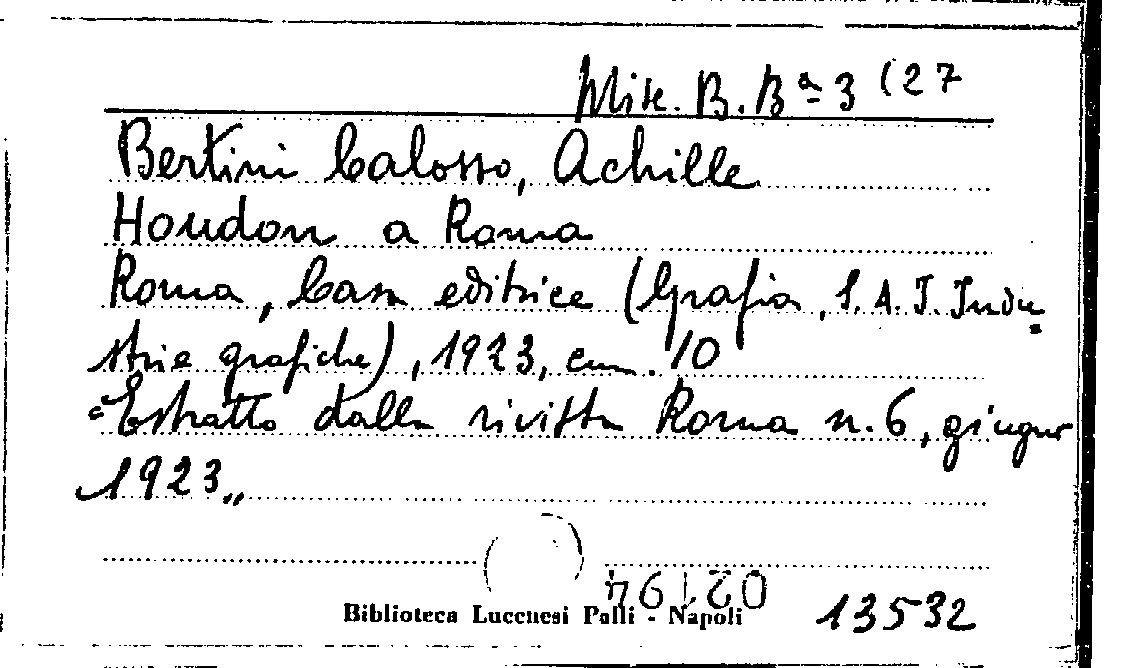 Misc. B. Bª 3 (27
Bertini Calosso, Achille
Houdon a Roma
Roma, Casa editrice (Grafia, S. A. I. Indu=
strie grafiche), 1923, cm. 10
"Estratto dalla rivista Roma n. 6, giugno
1923"
02194
Biblioteca Lucchesi Palli - Napoli
13532